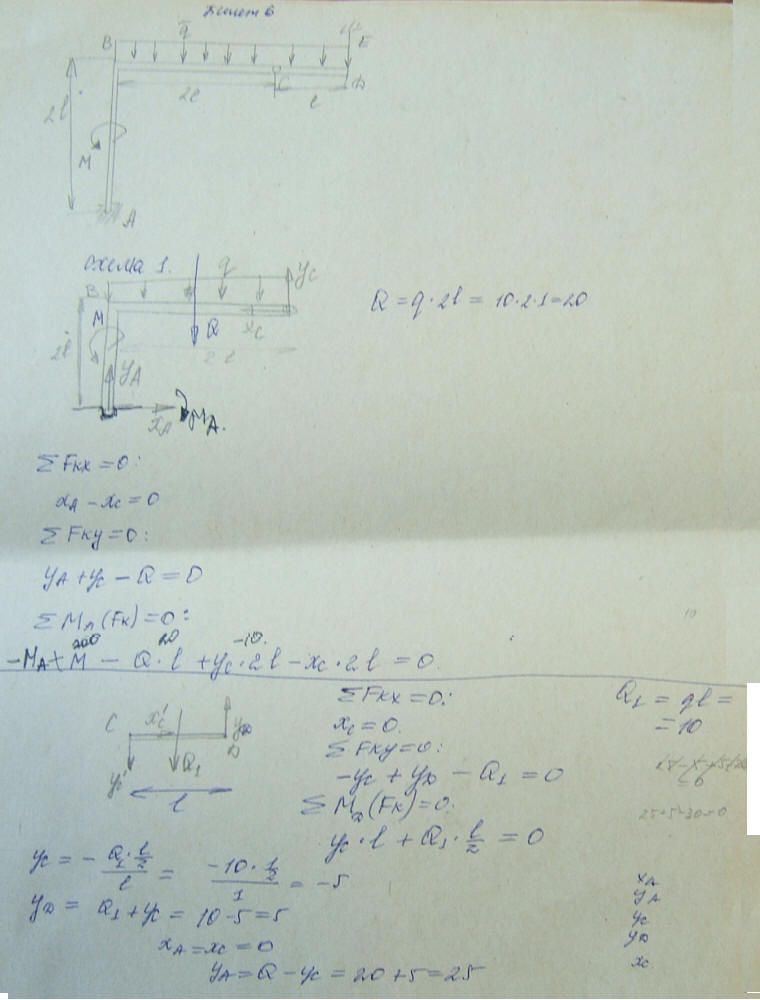 Билет 6
q
B
E
2l
C
D
2l
l
M
A
Схема 1.
q
yc
B
M
Q
xc
2l
2l
yA
xA
MA.
Q = q·2l = 10·2·1 = 20
ΣFkx = 0:
xA - xc = 0
ΣFky = 0:
yA + yc - Q = 0
ΣMA(Fk) = 0:
200 20 -10.
-MA + M - Q·l + yc·2l - xc·2l = 0.
C
xc'
yD
D
Q1
yc'
l
ΣFkx = 0:
xc = 0.
ΣFky = 0:
-yc + yD - Q1 = 0
ΣMD(Fk) = 0:
yc·l + Q1·l/2 = 0
Q1 = ql =
= 10
25+5-30=0
yc = - (Q1·l/2)/l = (-10·1/2)/1 = -5
yD = Q1 + yc = 10-5 = 5
xA = xc = 0
yA = Q - yc = 20+5 = 25
xA
yA
yc
yD
xc
10